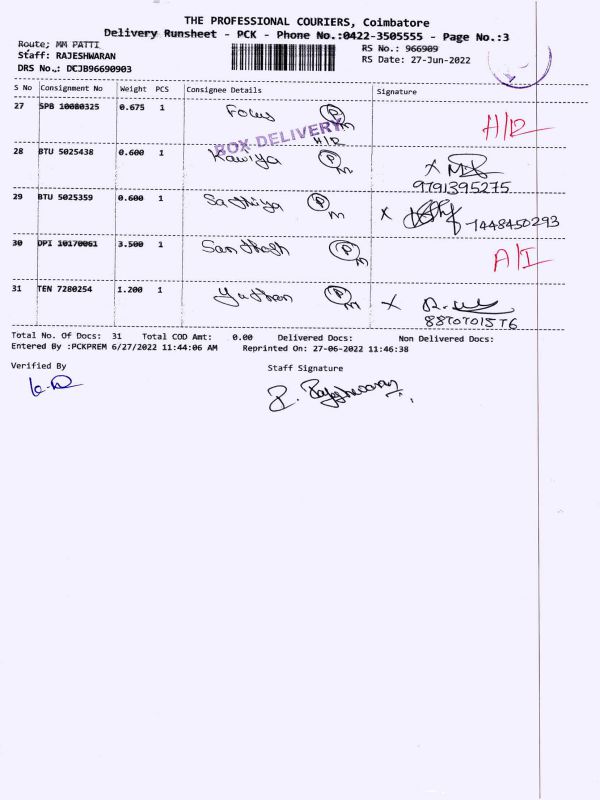 THE PROFESSIONAL COURIERS, Coimbatore
Delivery Runsheet - PCK - Phone No.:0422-3505555 - Page No.:3
Route; MM PATTI
Staff: RAJESHWARAN
DRS No.: DCJB96690903
RS No.: 966909
RS Date: 27-Jun-2022
S No Consignment No Weight PCS Consignee Details Signature
27 SPB 10080325 0.675 1 Focus P H/D
BOX DELIVERY
H/D
28 BTU 5025438 0.600 1 Kaviya P M X
9791395275
29 BTU 5025359 0.600 1 Sathiya P M X
7448450293
30 DPI 10170061 3.500 1 Santhosh P M A/I
31 TEN 7280254 1.200 1 P M X
Total No. Of Docs: 31 Total COD Amt: 0.00 Delivered Docs: Non Delivered Docs:
Entered By :PCKPREM 6/27/2022 11:44:06 AM Reprinted On: 27-06-2022 11:46:38
Verified By Staff Signature